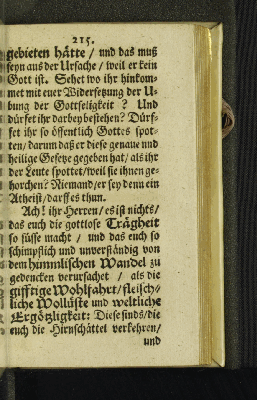 215.
gebieten hätte / und das muß
seyn aus der Ursache / weil er kein
Gott ist. Sehet wo ihr hinkom-
met mit euer Widersetzung der U-
bung der Gottseligkeit ? Und
dürfet ihr darbey bestehen? Dürf-
fet ihr so öffentlich Gottes spot-
ten / darum daß er diese genaue und
heilige Gesetze gegeben hat / als ihr
der Leute spottet / weil sie ihnen ge-
horchen? Niemand / er sey denn ein
Atheist / darff es thun.
Ach! ihr Herren / es ist nichts /
das euch die gottlose Trägheit
so süsse macht / und das euch so
schimpflich und unverständig von
dem himmlischen Wandel zu
gedencken verursachet / als die
gifftige Wohlfahrt / fleisch-
liche Wollüste und weltliche
Ergötzligkeit: Diese sinds / die
euch die Hirnschättel verkehren /
und